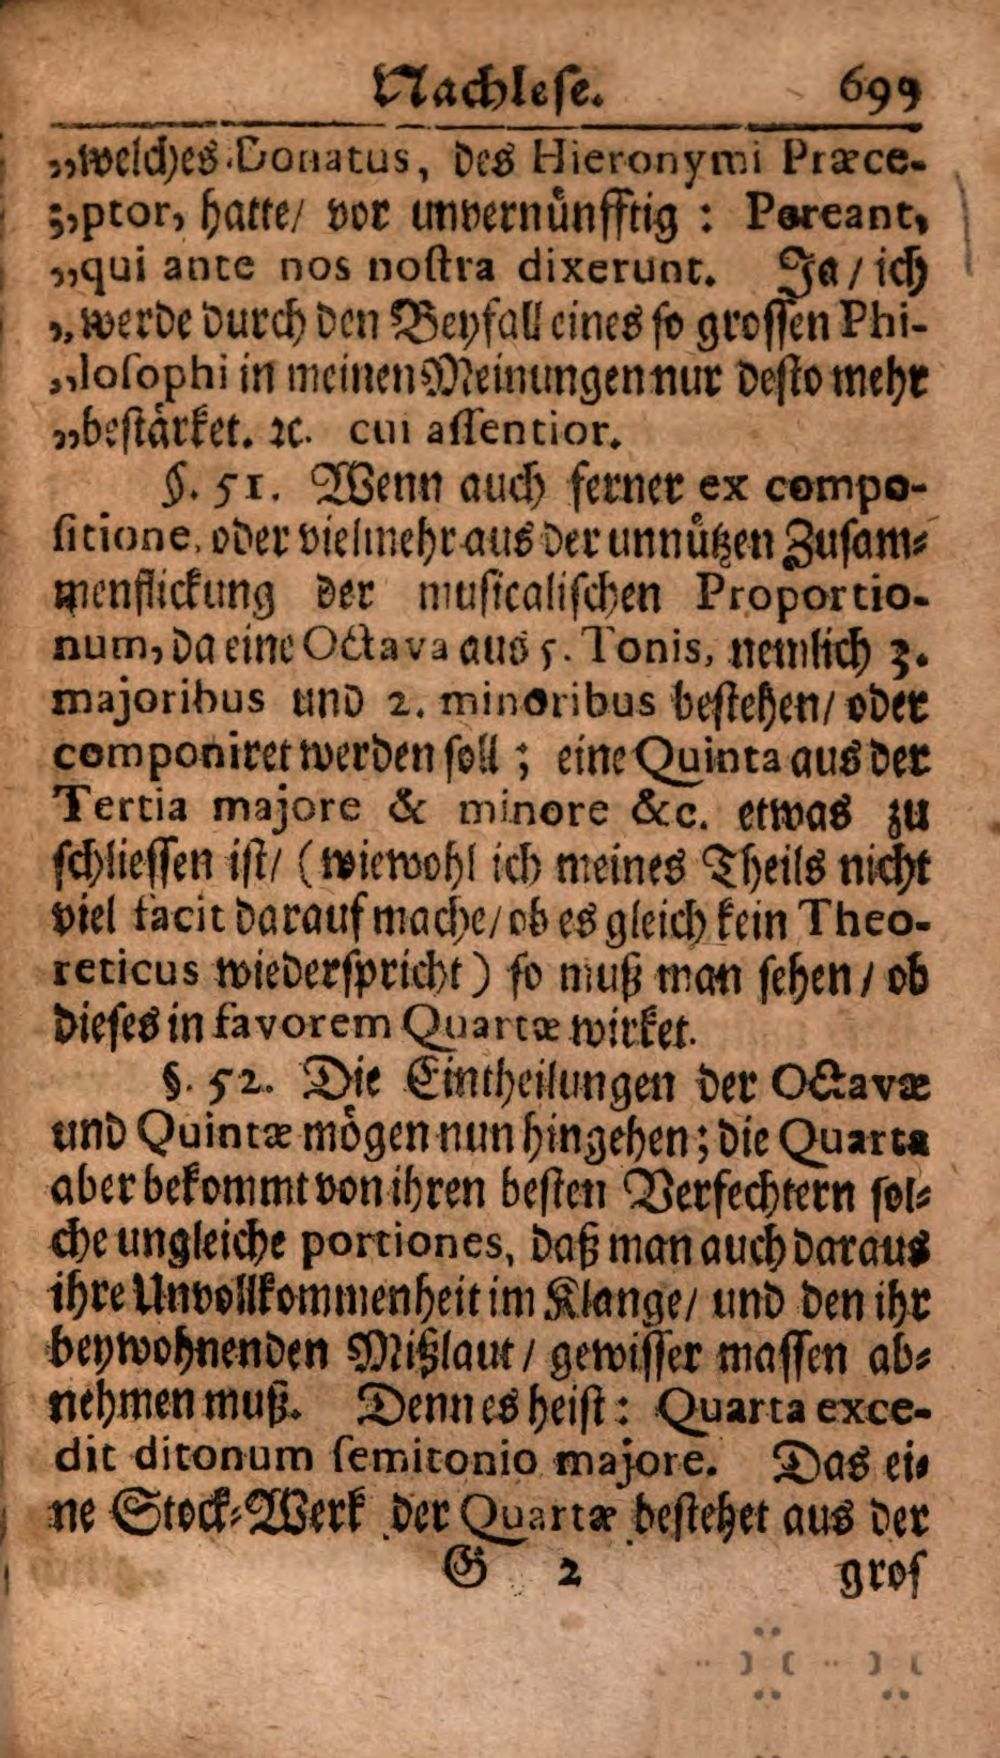 Nachlese. 699
„welches Donatus, des Hieronymi Præce-
„ptor, hatte/ vor unvernünfftig : Pereant,
„qui ante nos nostra dixerunt. Ja / ich
„werde durch den Beyfall eines so grossen Phi-
„losophi in meinen Meinungen nur desto mehr
„bestärket. ꝛc. cui assentior.
§. 51. Wenn auch ferner ex compo-
sitione, oder vielmehr aus der unnützen Zusam-
menflickung der musicalischen Proportio-
num, da eine Octava aus 5. Tonis, nemlich 3.
majoribus und 2. minoribus bestehen/ oder
componiret werden soll ; eine Quinta aus der
Tertia majore & minore &c. etwas zu
schliessen ist/ (wiewohl ich meines Theils nicht
viel facit darauf mache/ ob es gleich kein Theo-
reticus wiederspricht) so muß man sehen / ob
dieses in favorem Quartæ wirket.
§. 52. Die Eintheilungen der Octavæ
und Quintæ mögen nun hingehen; die Quarta
aber bekommt von ihren besten Verfechtern sol-
che ungleiche portiones, daß man auch daraus
ihre Unvollkommenheit im Klange/ und den ihr
beywohnenden Mißlaut / gewisser massen ab-
nehmen muß. Denn es heist : Quarta exce-
dit ditonum semitonio majore. Das ei-
ne Stock-Werk der Quartæ bestehet aus der
G 2 gros